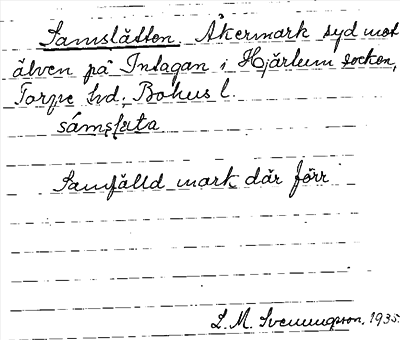 Samslåtten. Åkermark syd mot
älven på Intagan i Hjärtum socken,
Torpe hd, Bohus l.
Samfälld mark där förr
L. M. Svenungsson, 1935.